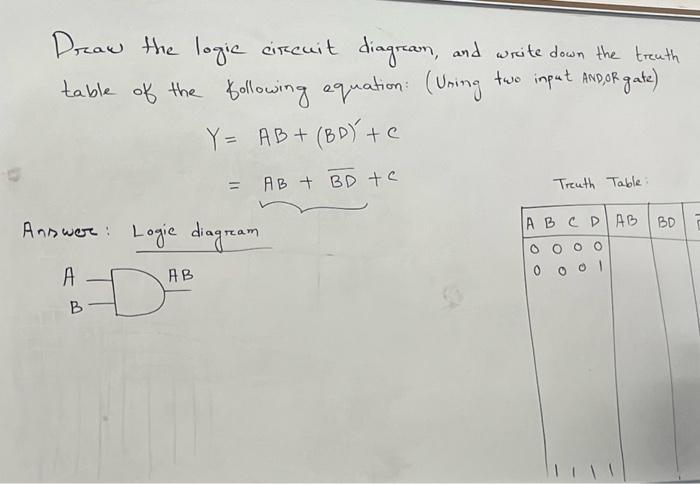 Draw the logic circuit diagram, and write down the truth
table of the following equation: (Using two input AND,OR gate)
Y = AB + (BD)′ + C
= AB + B̅D̅ + C
Answer: Logic diagram
A AB
B
Truth Table:
A B C D AB BD
0 0 0 0
0 0 0 1
1 1 1 1